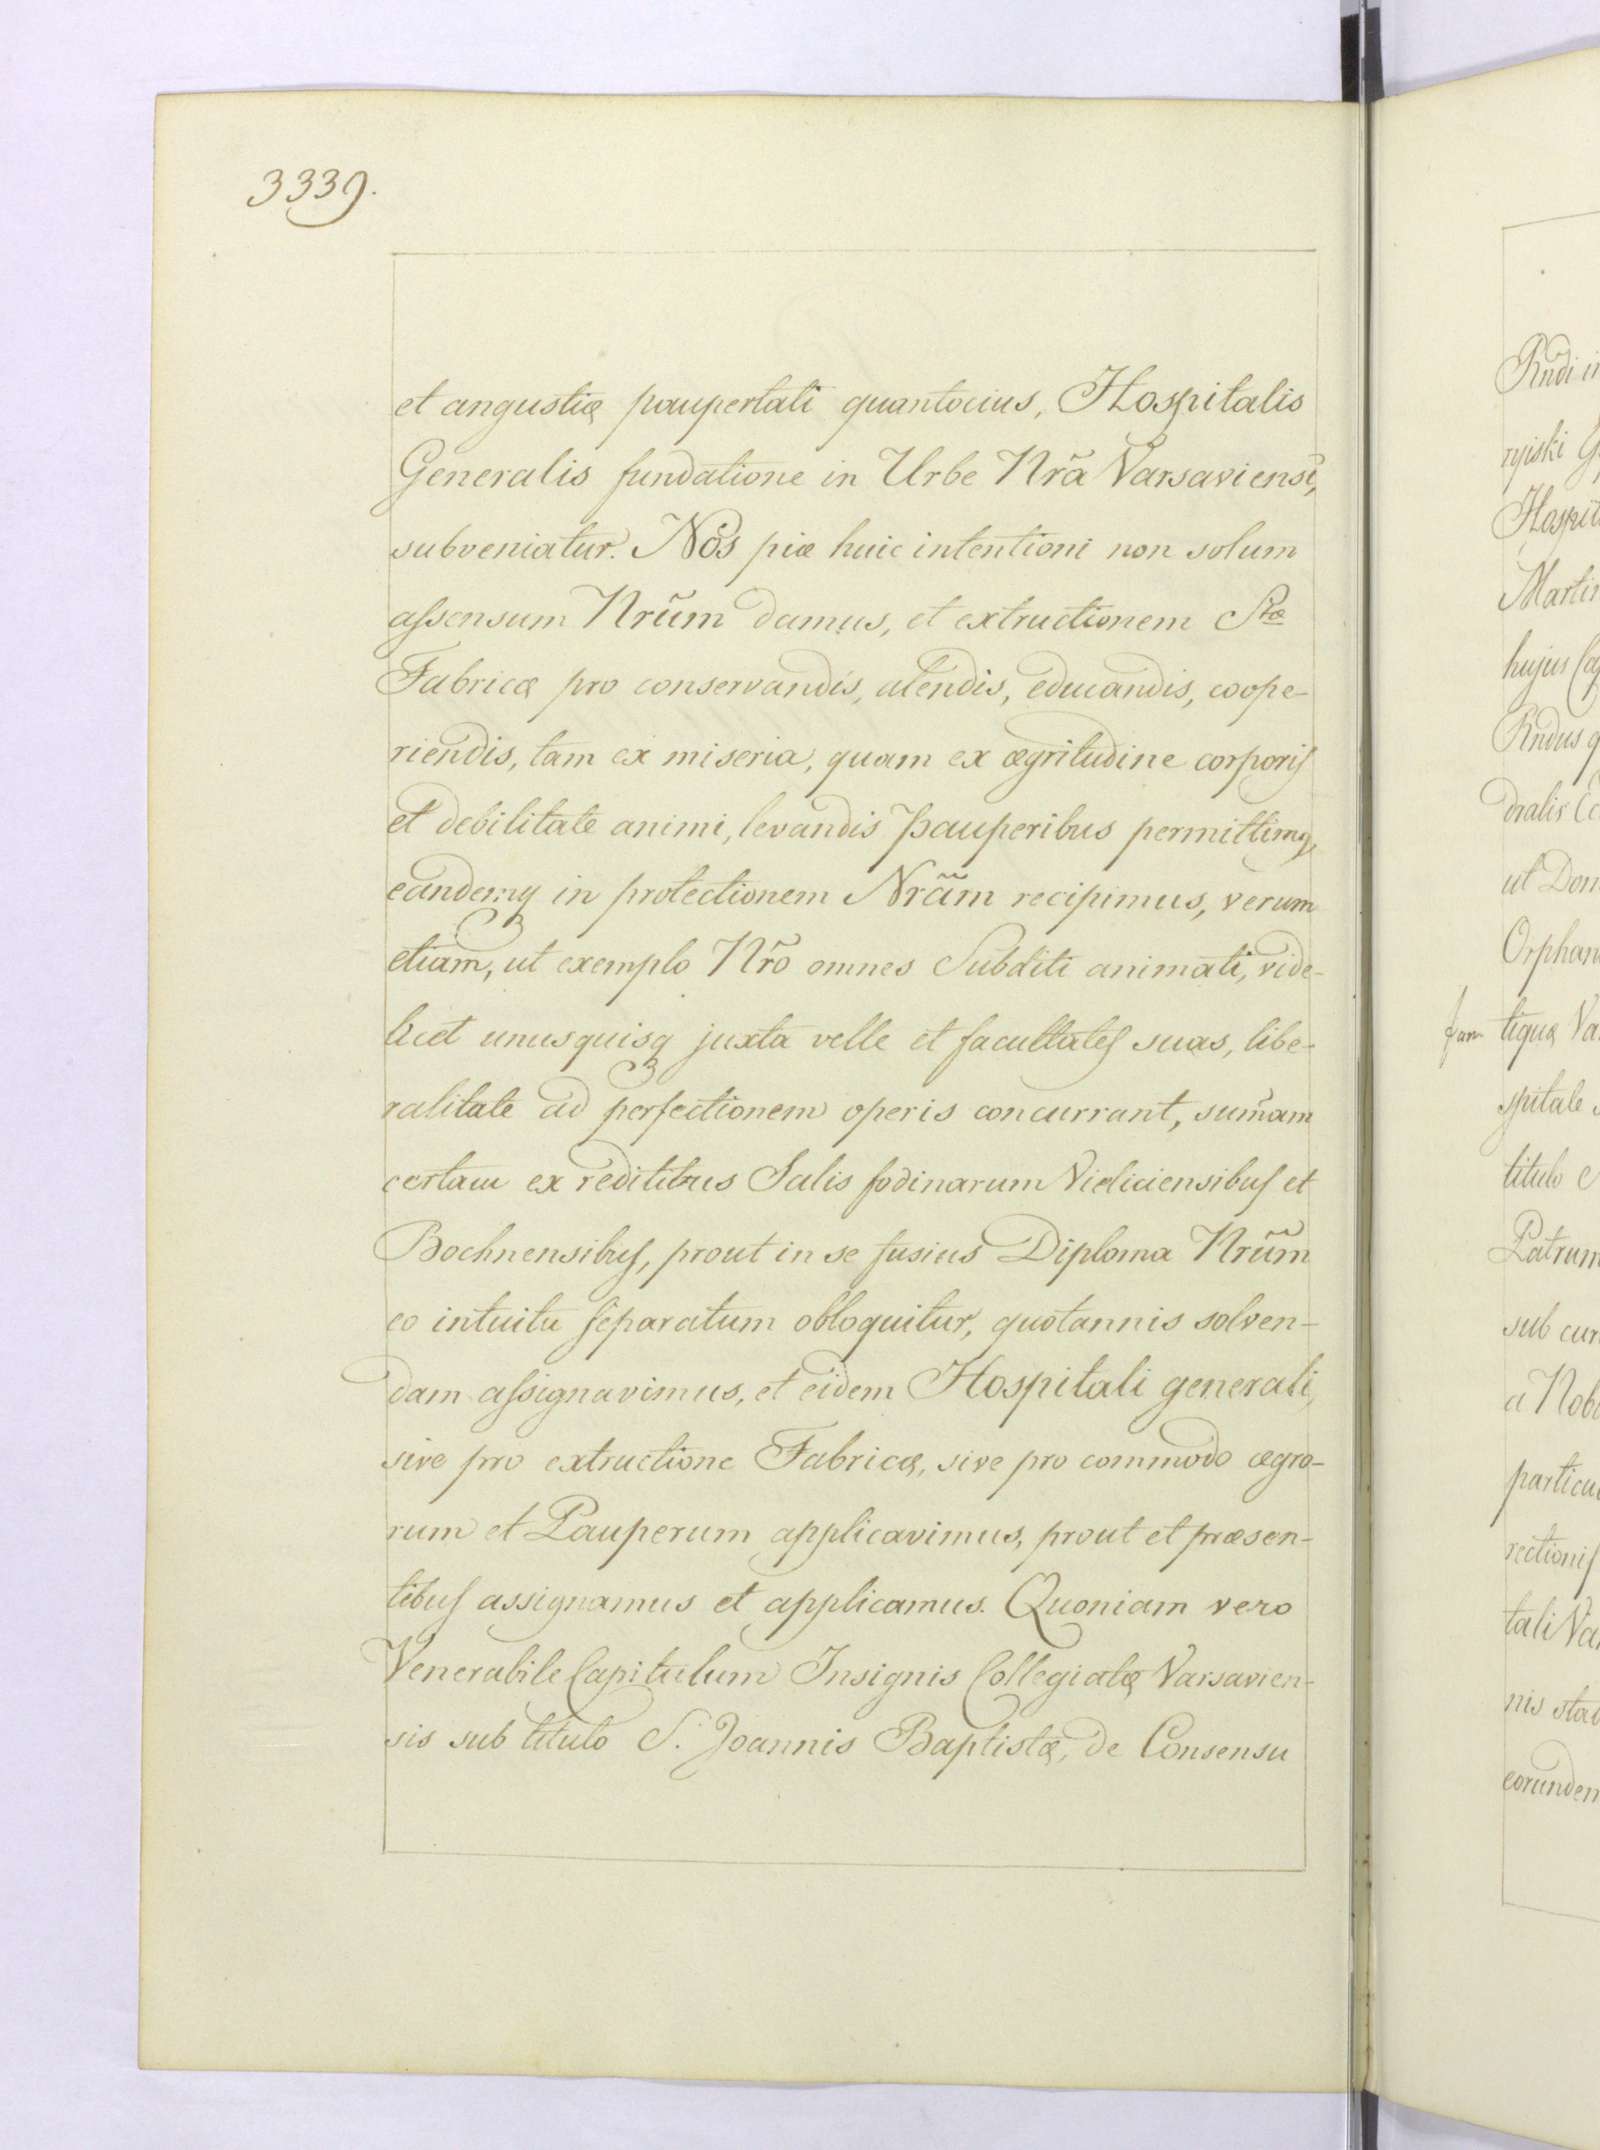 3339.
et angustiæ paupertati quantocius, Hospitalis
Generalis fundatione in Urbe Nrã Varsaviensi,
subveniatur. Nos piæ huic intentioni non solum
assensum Nrũm damus, et extructionem Stæ
Fabricæ pro conservandis, alendis, educandis, coope-
riendis, tam ex miseria, quam ex ægritudine corporis
et debilitate animi, levandis pauperibus permittimq,
eandemq in protectionem Nrãm recipimus, verum
etiam, ut exemplo Nrõ omnes Subditi animati, vide-
licet unusquisq juxta velle et facultates suas, libe-
ralitate ad perfectionem operis concurrant, sum̃am
certam ex reditibus Salis fodinarum Vieliciensibus et
Bochnensibus, prout in se fusius Diploma Nrũm
eo intuitu separatum obloquitur, quotannis solven-
dam assignavimus, et eidem Hospitali generali,
sive pro extructione Fabricæ, sive pro commodo ægro-
rum et Pauperum applicavimus, prout et præsen-
tibus assignamus et applicamus. Quoniam vero
Venerabile Capitulum Insignis Collegiatæ Varsavien-
sis sub titulo S. Joannis Baptistæ, de Consensu
Rñdi
Hospit
Martin
hujus
Rndus
dralis
ut Dom
Orphan
tiquæ Va
spitale
titulo
Patrum
sub cur
a Nob
particu
rectionis
tali Va
nis sta
eorundem